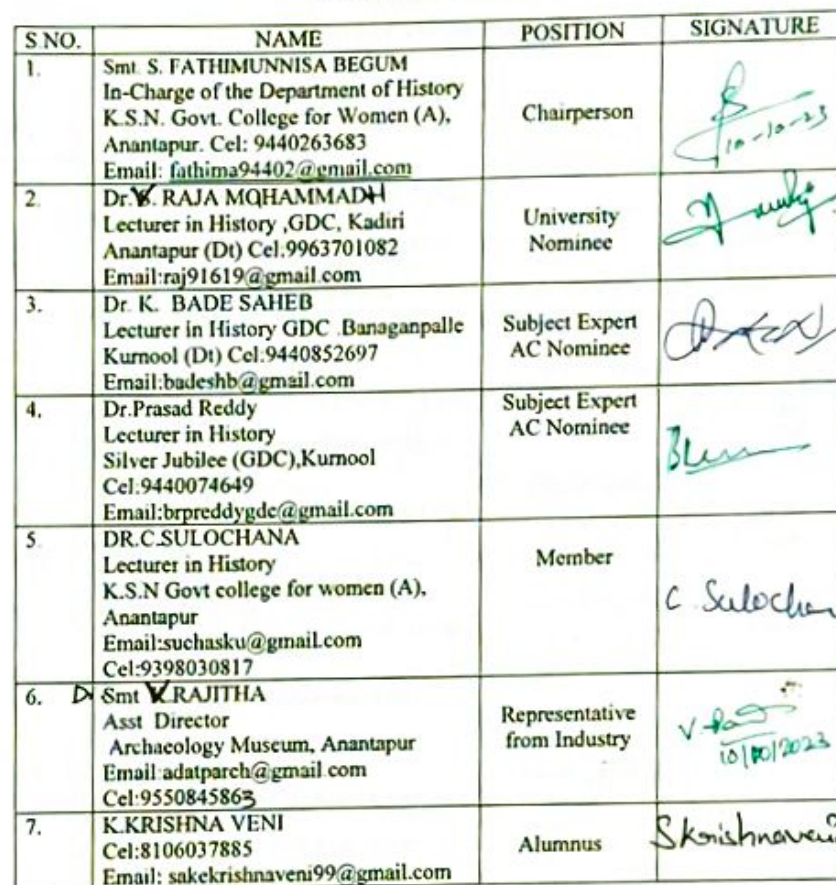 S.NO. NAME POSITION SIGNATURE
1. Smt. S. FATHIMUNNISA BEGUM
In-Charge of the Department of History
K.S.N. Govt. College for Women (A),
Anantapur. Cel: 9440263683
Email: fathima94402@gmail.com
Chairperson
10-10-23
2. Dr. V. RAJA MOHAMMADH
Lecturer in History ,GDC, Kadiri
Anantapur (Dt) Cel:9963701082
Email:raj91619@gmail.com
University
Nominee
3. Dr. K. BADE SAHEB
Lecturer in History GDC .Banaganpalle
Kurnool (Dt) Cel:9440852697
Email:badeshb@gmail.com
Subject Expert
AC Nominee
4. Dr.Prasad Reddy
Lecturer in History
Silver Jubilee (GDC),Kurnool
Cel:9440074649
Email:brpreddygdc@gmail.com
Subject Expert
AC Nominee
5. DR.C.SULOCHANA
Lecturer in History
K.S.N Govt college for women (A),
Anantapur
Email:suchasku@gmail.com
Cel:9398030817
Member
C. Sulochan
6. Smt V.RAJITHA
Asst Director
Archaeology Museum, Anantapur
Email:adatparch@gmail.com
Cel:9550845863
Representative
from Industry
10/10/2023
7. K.KRISHNA VENI
Cel:8106037885
Email: sakekrishnaveni99@gmail.com
Alumnus
S krishnaveni